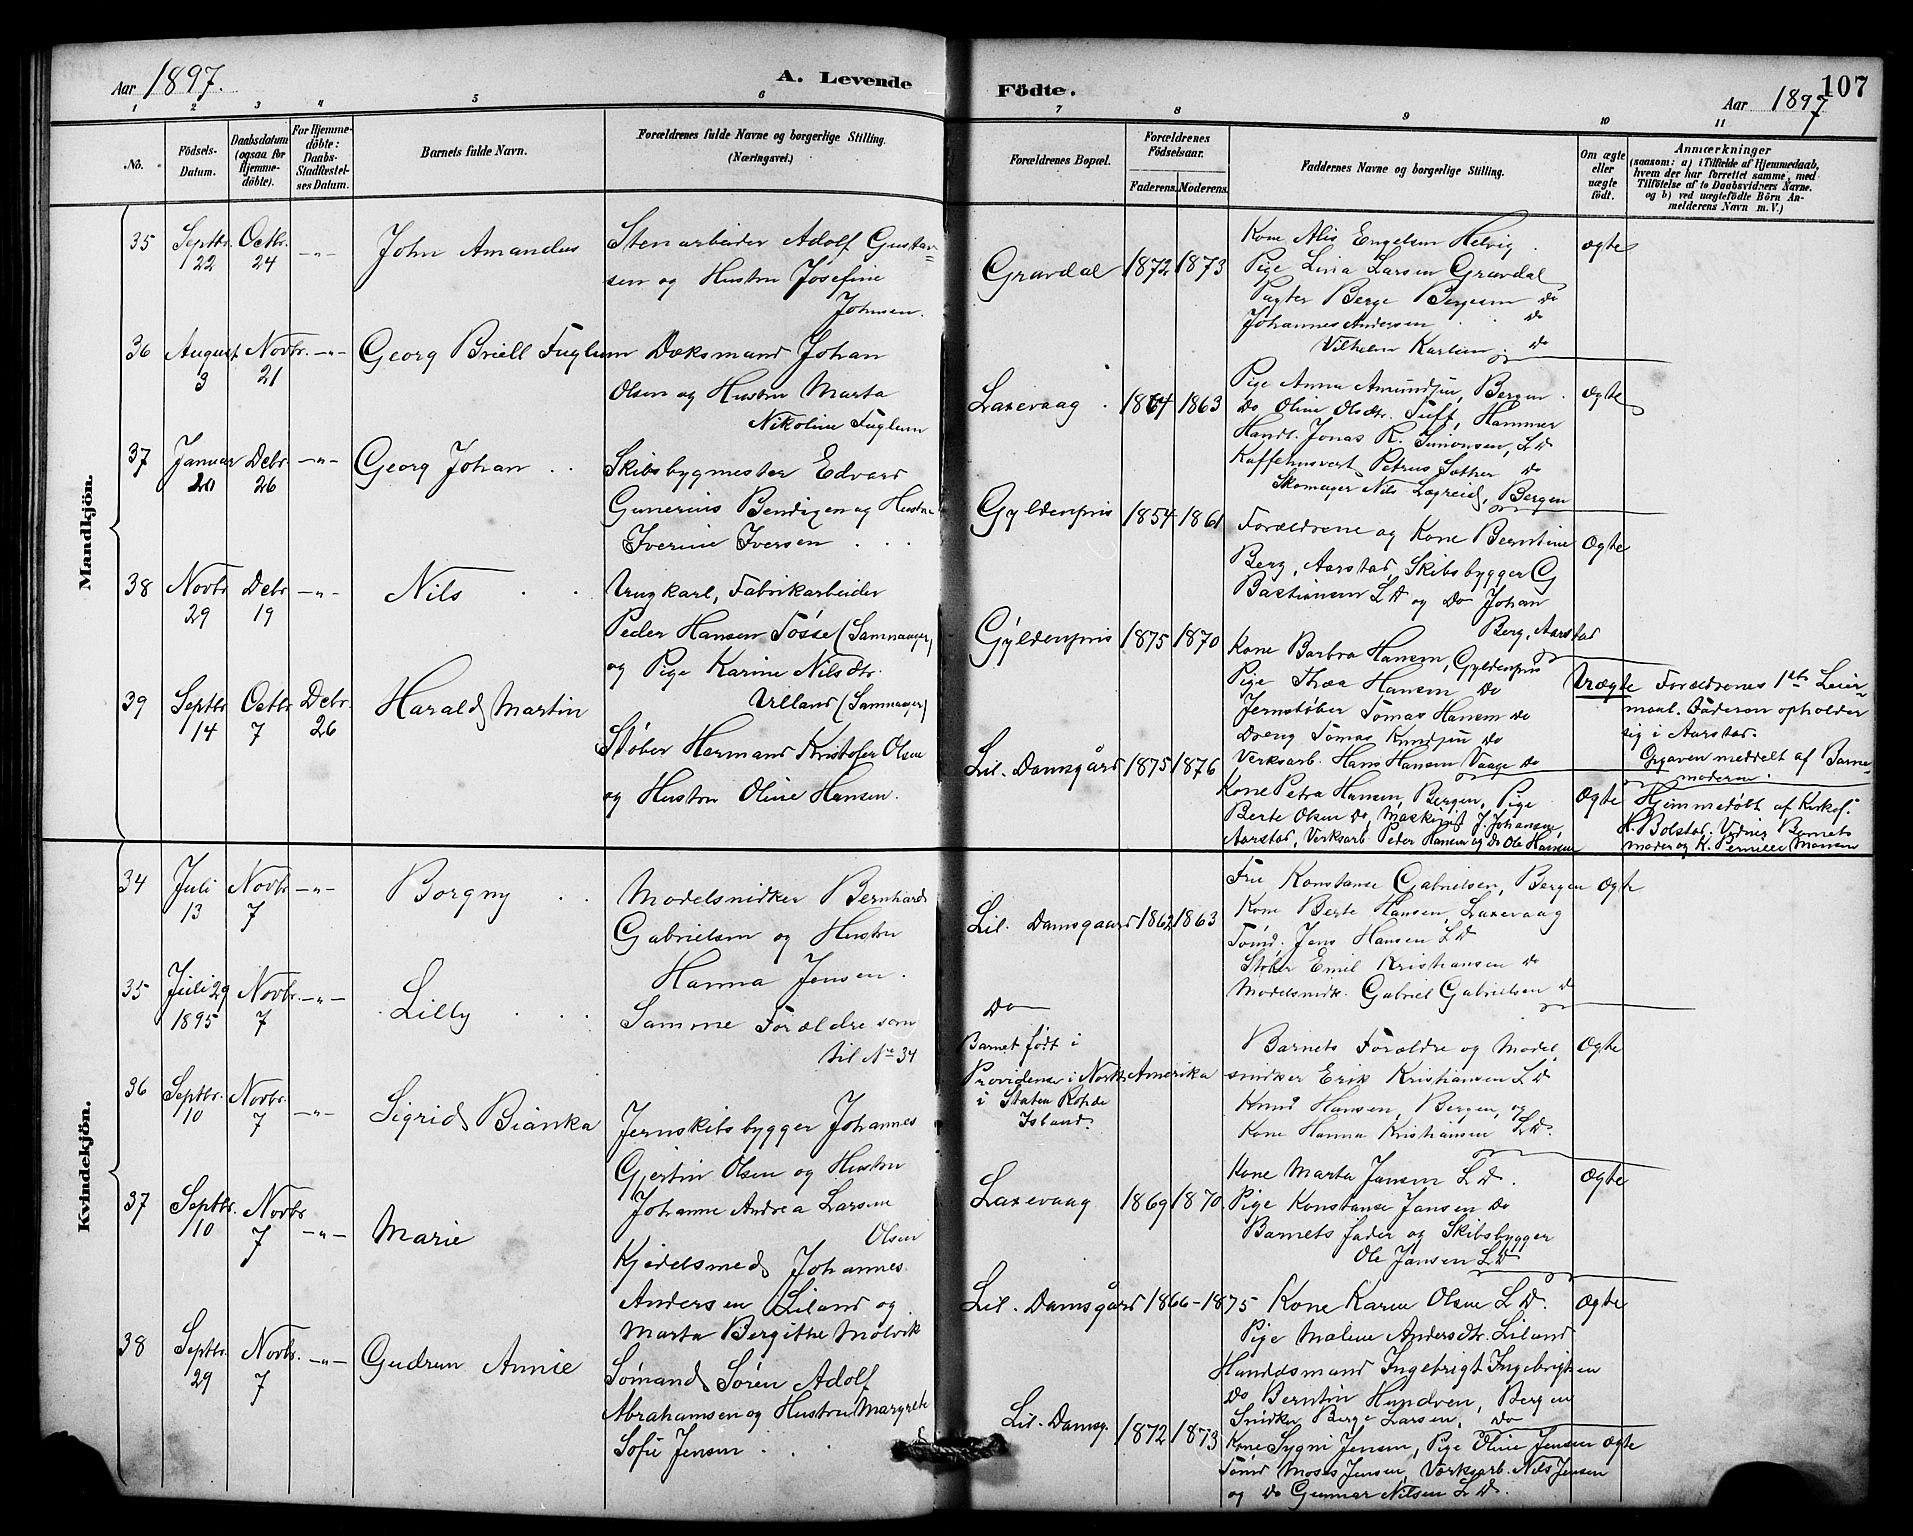 Aar 1897.
A. Levende
Födte.
107
Aar 1897
1 2 3 4 5 6 7 8 9 10 11
No.
Födsels-Datum.
Daabsdatum (ogsaa for Hjemme-døbte).
For Hjemme-døbte: Daabs-Stadfæstel-ses Datum.
Barnets fulde Navn.
Forældrenes fulde Navne og borgerlige Stilling.
(Næringsvei.)
Forældrenes Bopæl.
Forældrenes Födselsaar.
Faderens. Moderens.
Faddernes Navne og borgerlige Stilling.
Om ægte eller uægte født.
Anmærkninger
(saasom: a) i Tilfælde af Hjemmedaab,
hvem der har forrettet samme, med
Tilföielse af to Daabsvidners Navne.
og b) ved uægtefödte Börn An-
melderens Navn m. V.)
Mandkjön.
35 Septbr. 22 Octbr. 24 -"- John Amandus
Stenarbeider Adolf Gustav=
sen og Hustru Josefine
Johnsen.
Gravdal 1872 1873
Kone Alis Engelsen Helvig
Pige Lina Larsen Gravdal
Pagter Berge Bergesen Do
Johannes Andersen Do
Vilhelm Karlsen Do
ægte
36 August 3 Novbr. 21 -"- Georg Briell Fuglum
Dæksmand Johan
Olsen og Hustru Marta
Nikoline Fuglum
Laxevaag 1864 1863
Pige Anna Amundsen, Bergen
Do Oline Olsdtr. Tuft, Hammer
Handl. Jonas R. Simonsen, L D
Kaffehusvert Petrus Sæther Do
Skomager Nils Lægreid, Bergen
ægte
37 Januar 20 Debr. 26 -"- Georg Johan
Skibsbygmester Edvard
Gunerius Bendixen og Hustru
Iverine Iversen
Gyldenpris 1854 1861
Forældrene og Kone Berntine
Berg, Aarstad, Skibsbygger G
Bastiansen L D og Do Johan
Berg, Aarstad
ægte
38 Novbr 29 Debr 19 -"- Nils
Ungkarl, Fabrikarbeider
Peder Hansen Tösse (Samnanger)
og Pige Karine Nilsdtr.
Ulland (Samnanger)
Gyldenpris 1875 1870
Kone Barbra Hansen, Gyldenpris
Pige Thea Hansen Do
Jernstøber Tomas Hansen Do
Dreng Tomas Knudsen Do
Verksarb. Hans Hansen Vaage Do
Uægte
Forældrenes 1ste Leier-
maal. Faderen opholder
sig i Aarstad.
Opgaven meddelt af Barne-
moderen.
39 Septbr 14 Octbr 7 Debr. 26 Harald Martin
Støber Hermand Kristofer Olsen
og Hustru Oline Hansen.
Lil. Damsgård 1875 1876
Kone Petra Hansen, Bergen, Pige
Berte Olsen Do, Maskinist J. Johansen,
Aarstad, Verksarb. Peder Hansen og Do Ole Hansen
ægte
Hjemmedøbt af Kirkes.
H. Bolstad. Vidner Barnets
moder og K. Pernille Hansen
Kvindekjön.
34 Juli 13 Novbr 7 -"- Borgny
Modelsnidker Bernhard
Gabrielsen og Hustru
Hanna Jensen.
Lil. Damsgaard 1862 1863
Frk Konstanse Gabrielsen, Bergen
Kone Berte Hansen, Laxevaag
Tömd. Jens Hansen L D
Støber Emil Kristiansen Do
Modelsnidk. Gabriel Gabrielsen Do
ægte
35 Juli 29 1895 Novbr. 7 -"- Lilly
Samme Forældre som
til No 34
Do
Barnet født i
Providense i Nord Amerika
i Staten Rohde
Island.
Barnets Forældre og Model
snidker Erik Kristiansen L D
Knud Hansen, Bergen, og
Kone Hanna Kristiansen L D.
ægte
36 Septbr. 10 Novbr. 7 -"- Sigrid Bianka
Jernskibsbygger Johannes
Gjertin Olsen og Hustru
Johanne Andrea Larsen
Olsen
Laxevaag 1869 1870
Kone Marta Jansen L D.
Pige Konstanse Jansen Do
Barnets fader og Skibsbygger
Ole Jansen L D
ægte
37 Septbr. 10 Novbr 7 -"- Marie
Kjedelsmed Johannes
Andersen Liland og
Marta Bergithe Molvik
Lil. Damsgård 1866-1875
Kone Karen Olsen L D.
Pige Malene Andersdtr. Liland
Handdsmand Ingebrigt Ingebrigtsen
Do Berntin Hundven, Bergen
Snidker Berge Larsen, Do
ægte
38 Septbr. 29 Novbr. 7 -"- Gudrun Annie
Sømand Søren Adolf
Abrahamsen og Hustru Margrete
Sofie Jensen
Lil. Damsg. 1872 1873
Kone Sygni Jensen, Pige Oline Jensen
Tömd Moses Jensen, Værksarb. Nils Jensen
og Do Gunnar Nilsen L D.
ægte